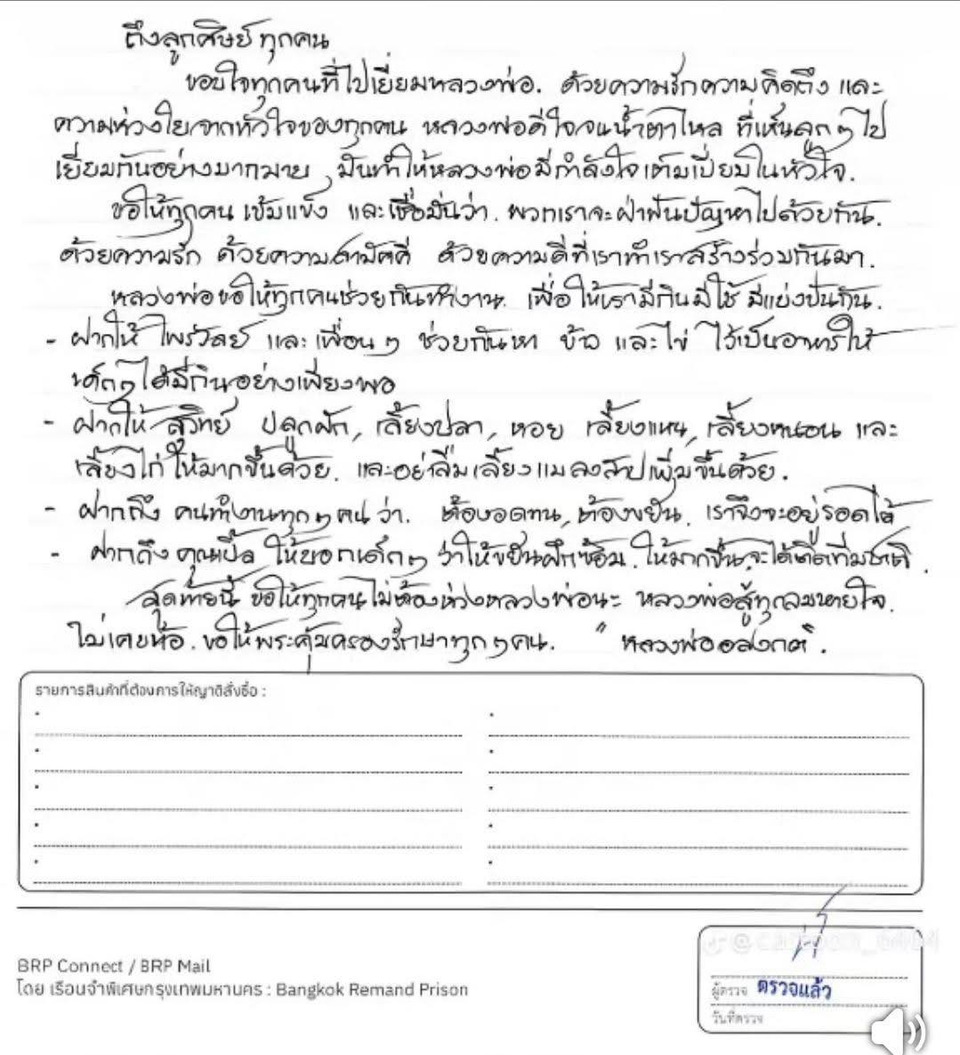 ถึงลูกศิษย์ทุกคน
ขอบใจทุกคนที่ไปเยี่ยมหลวงพ่อ. ด้วยความรักความคิดถึง และ
ความห่วงใยจากหัวใจของทุกคน หลวงพ่อดีใจจนน้ำตาไหล ที่เห็นลูกๆไป
เยี่ยมกันอย่างมากมาย, มันทำให้หลวงพ่อมีกำลังใจเต็มเปี่ยมในหัวใจ.
ขอให้ทุกคนเข้มแข็ง และเชื่อมั่นว่า. พวกเราจะฝ่าฟันปัญหาไปด้วยกัน.
ด้วยความรัก ด้วยความสามัคคี ด้วยความดีที่เราทำเราสร้างร่วมกันมา.
หลวงพ่อขอให้ทุกคนช่วยกันทำงาน. เพื่อให้เรามีกินมีใช้ มีแบ่งปันกัน.
- ฝากให้ ไพรวัลย์ และเพื่อนๆ ช่วยกันหา ข้าว และไข่ ไว้เป็นอาหารให้
เด็กๆได้มีกินอย่างเพียงพอ
- ฝากให้ สุวิทย์ ปลูกผัก, เลี้ยงปลา, หอย เลี้ยงแหน, เลี้ยงหนอน และ
เลี้ยงไก่ให้มากขึ้นด้วย. และอย่าลืมเลี้ยงแมลงสาปเพิ่มขึ้นด้วย.
- ฝากถึง คนทำงานทุกๆคน ว่า. ต้องอดทน, ต้องขยัน. เราจึงจะอยู่รอดได้
- ฝากถึง คุณเปิ้ล ให้บอกเด็กๆ ว่าให้ขยันฝึกซ้อม. ให้มากขึ้น, จะได้ติดทีมชาติ.
สุดท้ายนี้ ขอให้ทุกคนไม่ต้องห่วงหลวงพ่อนะ หลวงพ่อสู้ทุกลมหายใจ.
ไม่เคยท้อ. ขอให้พระคุ้มครองรักษาทุกๆคน. " หลวงพ่ออลงกต".
รายการสินค้าที่ต้องการให้ญาติสั่งซื้อ :
BRP Connect / BRP Mail
โดย เรือนจำพิเศษกรุงเทพมหานคร : Bangkok Remand Prison
ผู้ตรวจ ตรวจแล้ว
วันที่ตรวจ